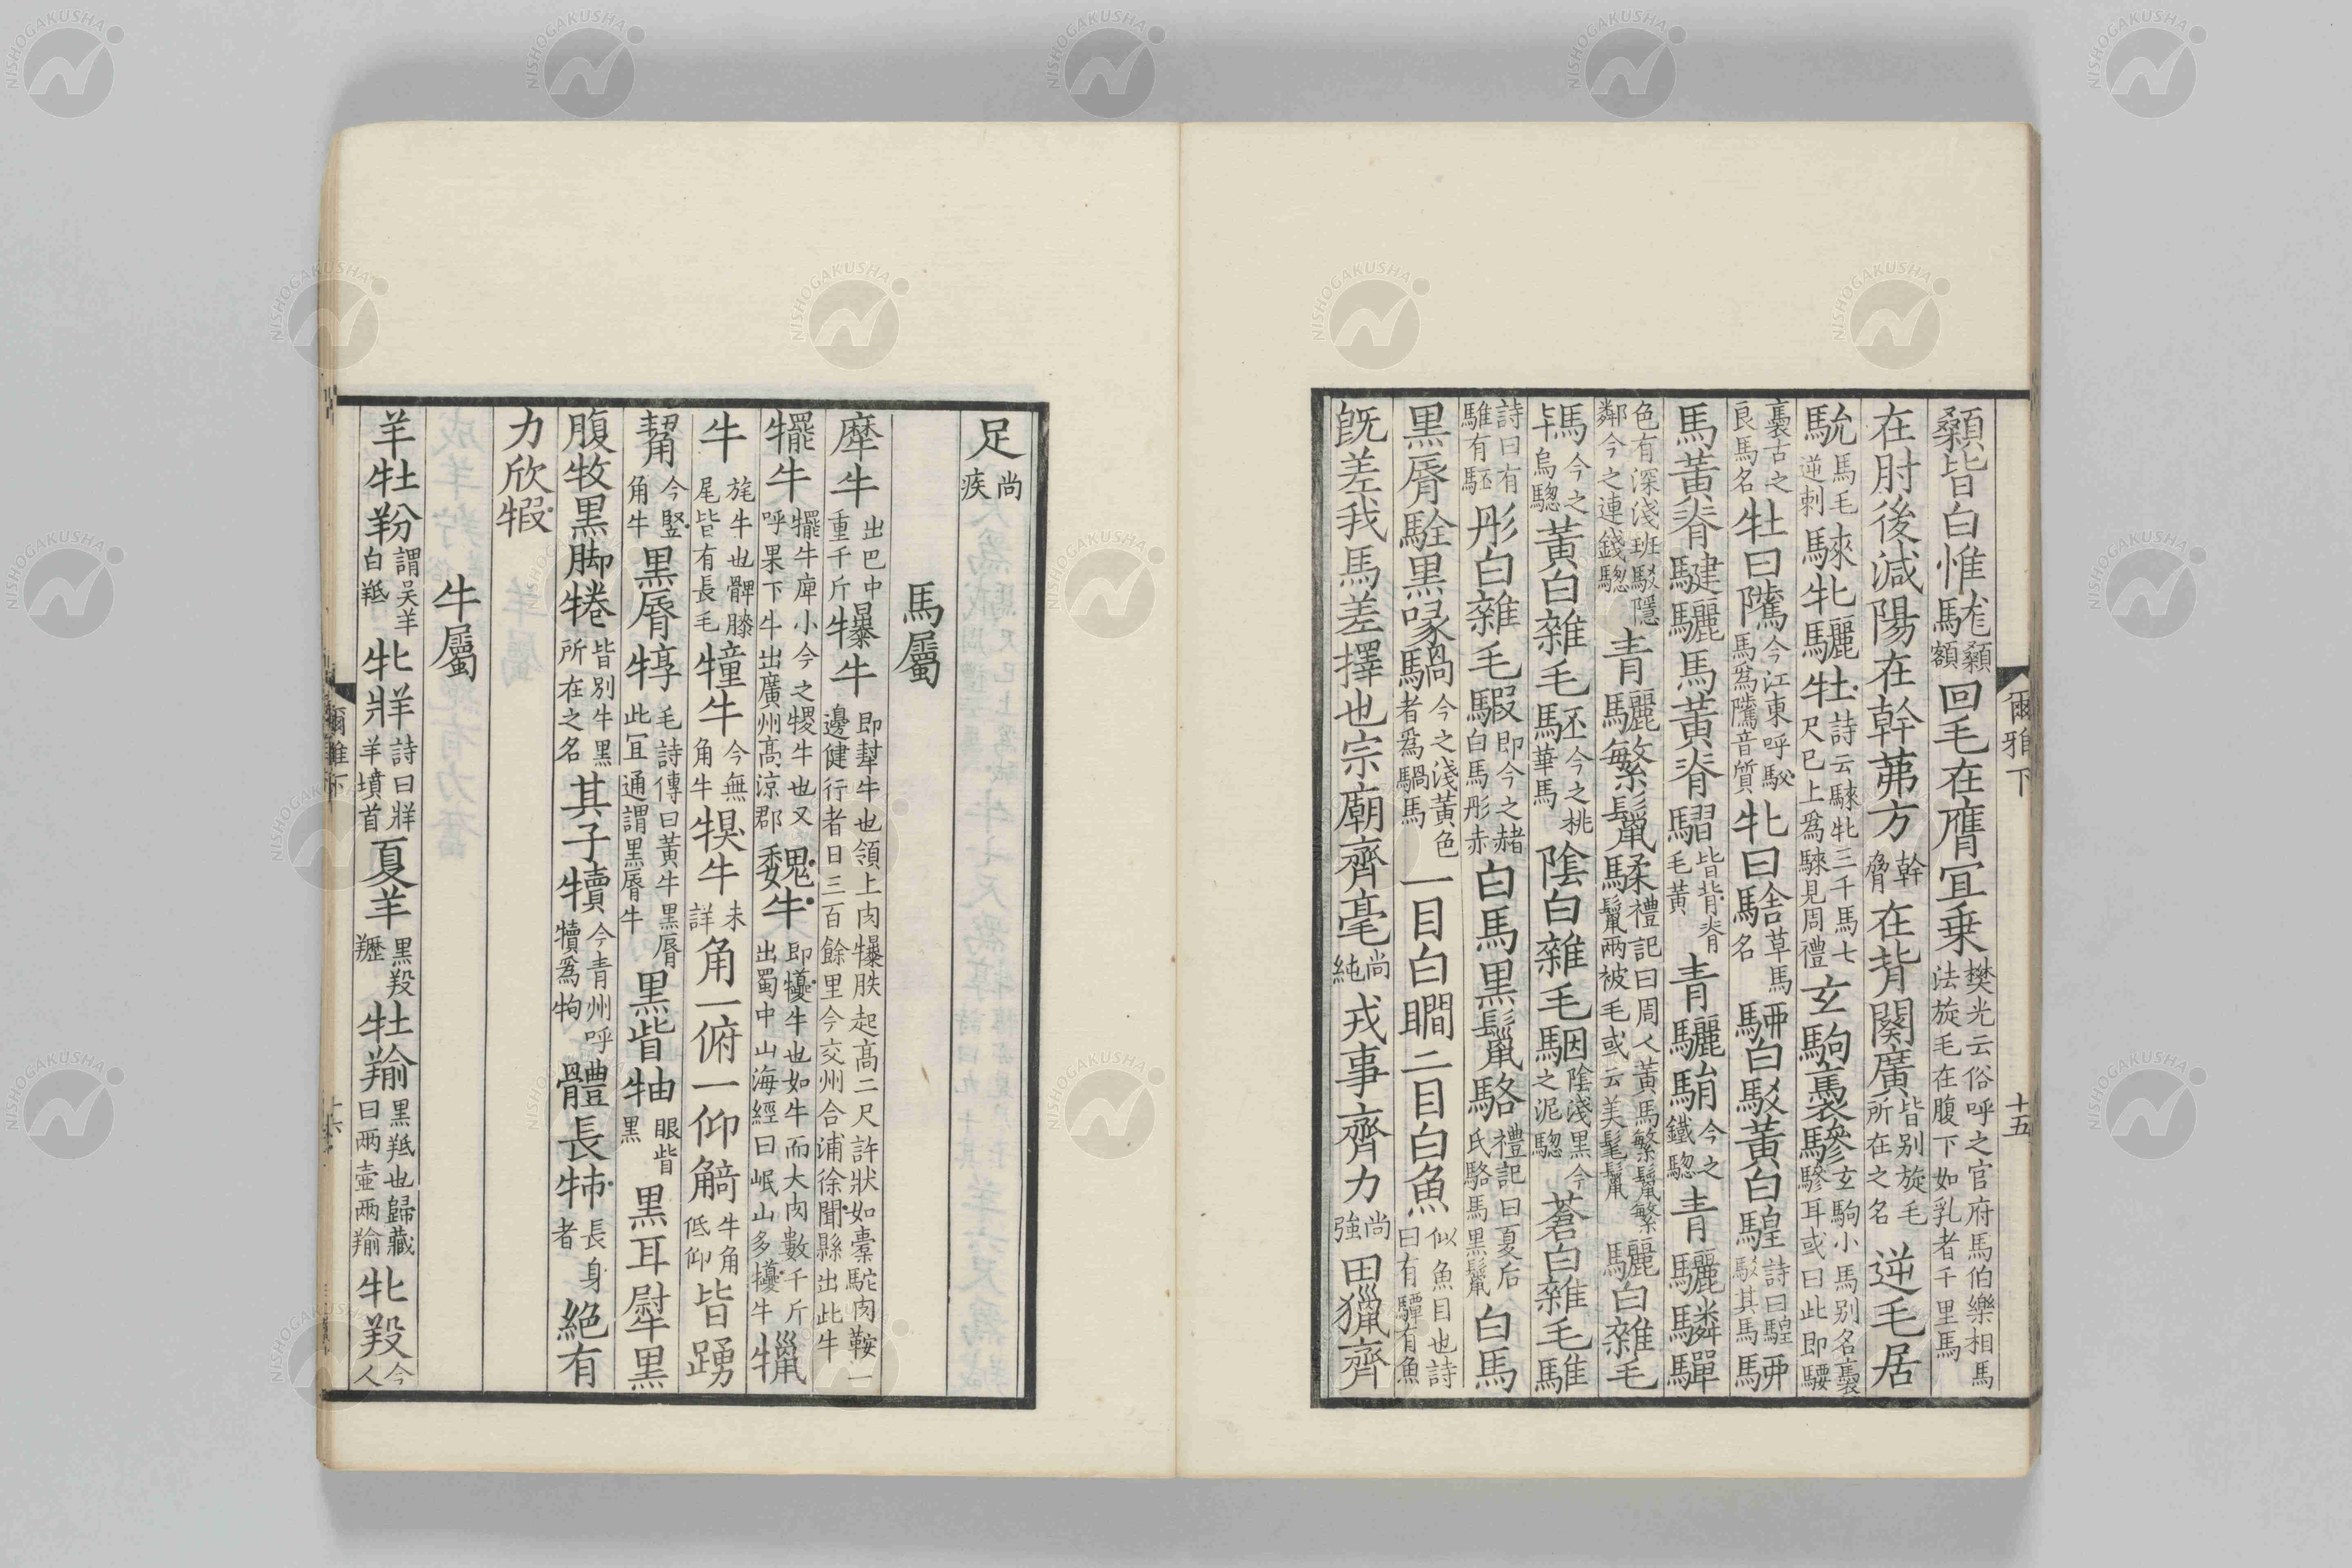 顙皆白惟駹顙額回毛在膺宜乗樊光云俗呼之官府馬伯樂相馬法旋毛在腹下如乳者千里馬
在肘後減陽在幹茀方幹脅在背闋廣皆别旋毛所在之名逆毛居
馻馬毛逆刺騋牝驪牡詩云騋牝三千馬七尺巳上爲騋見周禮玄駒褭驂玄駒小馬别名褭驂耳或曰此即騕
褭古之良馬名牡曰騭今江東呼駮馬爲騭音質牝曰騇草馬名駵白駁黃白騜詩曰騜駁其馬駵
馬黃脊騝驪馬黃脊騽皆背脊毛黃青驪駽今之鐵驄青驪驎驒
色有深淺班駁隱粼今之連錢驄青驪繁鬛騥禮記曰周人黃馬繁鬛繁鬛兩被毛或云美髦鬛驪白雜毛
駂今之烏驄黃白雜毛駓今之桃華馬陰白雜毛駰陰淺黑今之泥驄蒼白雜毛騅
詩曰有騅有駓彤白雜毛騢即今之赭白馬彤赤白馬黑鬛駱禮記曰夏后氏駱馬黑鬛白馬
黑脣駩黑喙騧今之淺黃色者爲騧馬一目白瞷二目白魚似魚目也詩曰有驔有魚
旣差我馬差擇也宗廟齊毫尚純戎事齊力尚強田獵齊
爾雅下
十五
足尚疾
馬屬
犘牛出巴中重千斤犦牛即犎牛也領上肉犦胅起高二尺許狀如橐駝肉鞍一邊健行者日三百餘里今交州合浦徐聞縣出此牛
犤牛犤牛庳小今之㸬牛也又呼果下牛出廣州高涼郡犩牛即犪牛也如牛而大肉數千斤出蜀中山海經曰岷山多犪牛犣
牛旄牛也髀膝尾皆有長毛犝牛今無角牛犑牛未詳角一俯一仰觭牛角低仰皆踴
觢今竪角牛黑脣犉毛詩傳曰黃牛黑脣此宜通謂黑脣牛黑眥牰眼眥黑黑耳犚黑
腹牧黑脚犈皆别牛黑所在之名其子犢今青州呼犢爲㸬體長牬長身者絕有
力欣犌
牛屬
羊牡羒謂吳羊白羝牝牂詩曰牂羊墳首夏羊黑羖䍽牡羭黑羝也歸藏曰兩壺兩羭牝羖今人